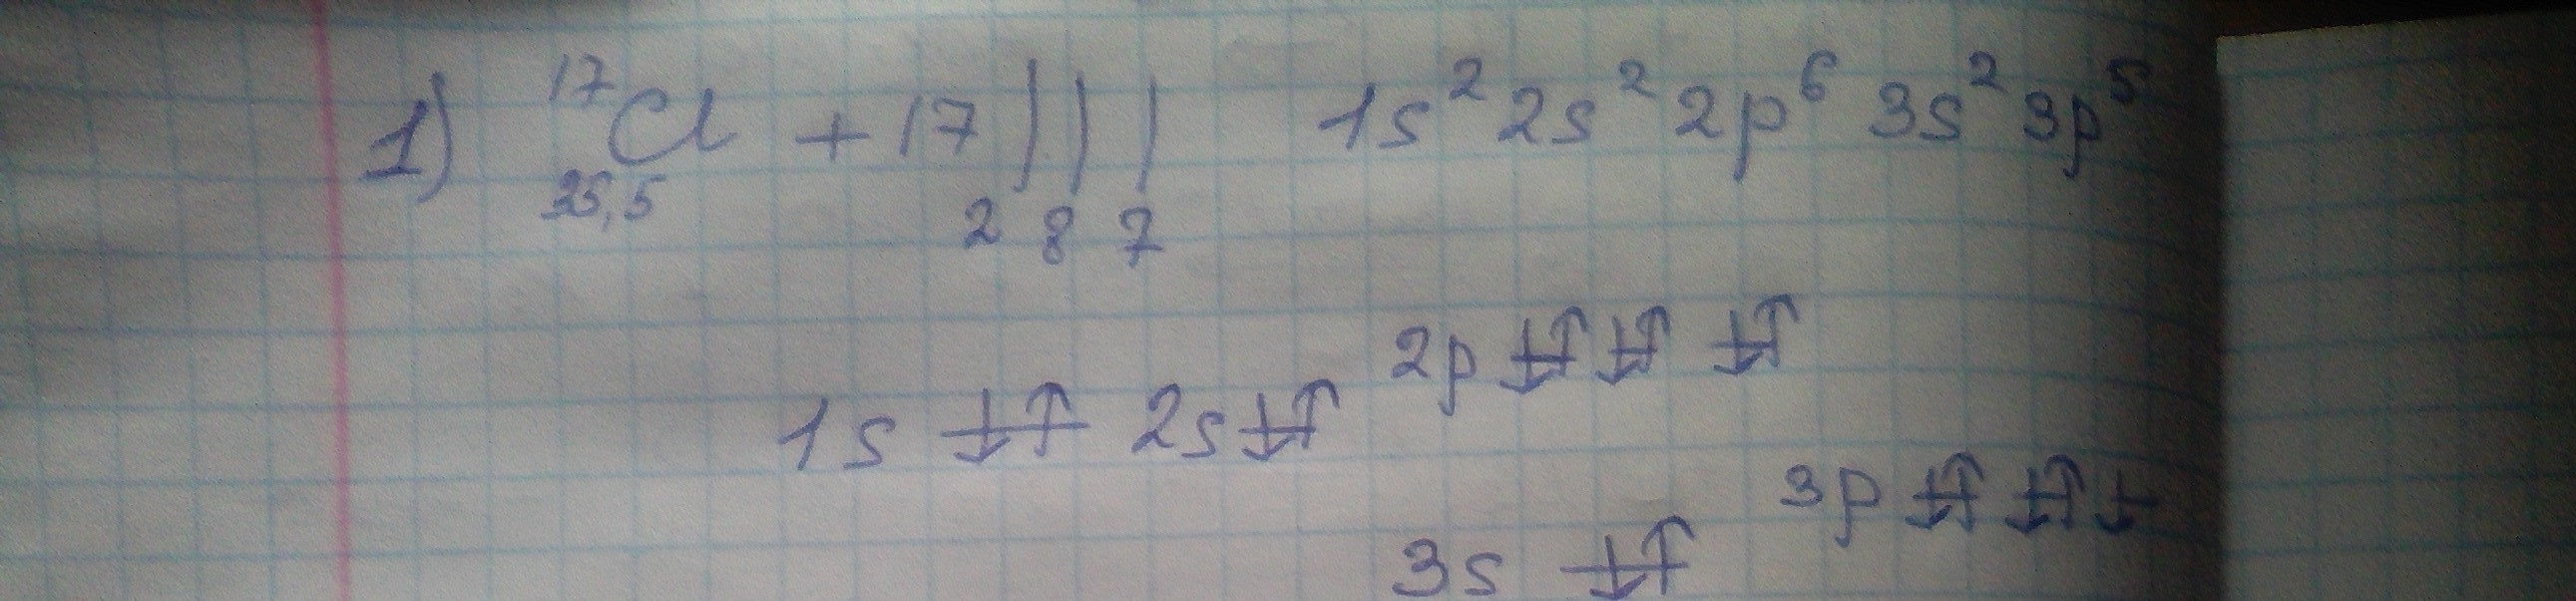 1) ¹⁷Cl +17 ))) 1s² 2s² 2p⁶ 3s² 3p⁵
35,5 2 8 7
2p ↓↑ ↓↑ ↓↑
1s ↓↑ 2s ↓↑
3p ↓↑ ↓↑ ↓
3s ↓↑